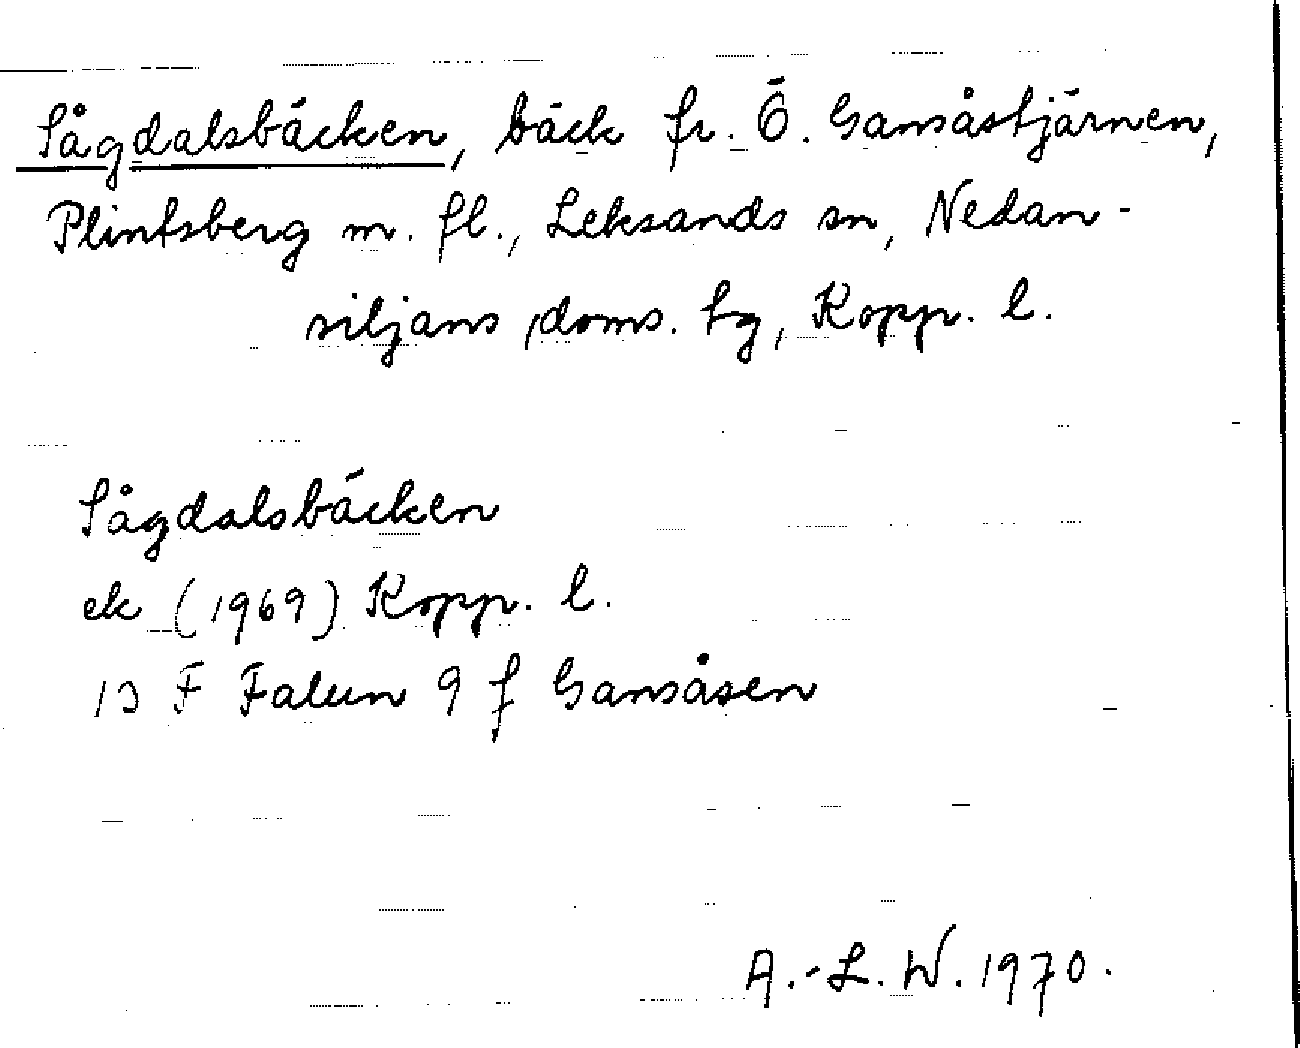 Sågdalsbäcken, bäck fr. Ö. Gansåstjärnen,
Plintsberg m. fl., Leksands sn, Nedan-
siljans doms. tg, Kopp. l.
Sågdalsbäcken
ek (1969) Kopp. l.
13 F Falun 9 f Gansåsen
A.-L. W. 1970.